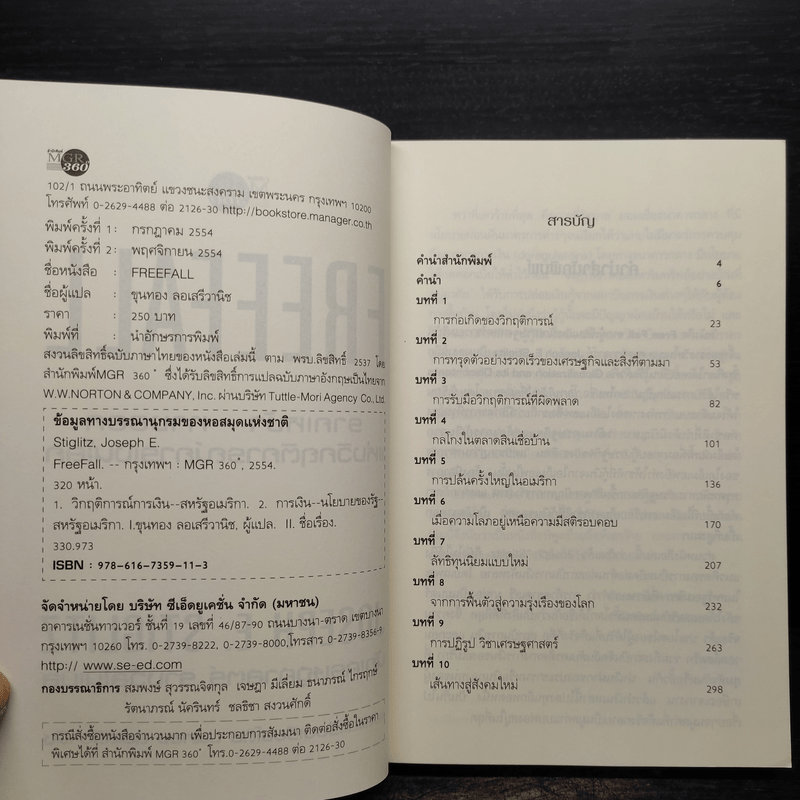 สำนักพิมพ์
MGR
360°
102/1 ถนนพระอาทิตย์ แขวงชนะสงคราม เขตพระนคร กรุงเทพฯ 10200
โทรศัพท์ 0-2629-4488 ต่อ 2126-30 http://bookstore.manager.co.th
พิมพ์ครั้งที่ 1 : กรกฎาคม 2554
พิมพ์ครั้งที่ 2 : พฤศจิกายน 2554
ชื่อหนังสือ : FREEFALL
ชื่อผู้แปล : ขุนทอง ลอเสรีวานิช
ราคา : 250 บาท
พิมพ์ที่ : นำอักษรการพิมพ์
สงวนลิขสิทธิ์ฉบับภาษาไทยของหนังสือเล่มนี้ ตาม พรบ.ลิขสิทธิ์ 2537 โดย
สำนักพิมพ์MGR 360° ซึ่งได้รับลิขสิทธิ์การแปลฉบับภาษาอังกฤษเป็นไทยจาก
W.W.NORTON & COMPANY, Inc. ผ่านบริษัท Tuttle-Mori Agency Co., Ltd.
ข้อมูลทางบรรณานุกรมของหอสมุดแห่งชาติ
Stiglitz, Joseph E.
FreeFall. -- กรุงเทพฯ : MGR 360°, 2554.
320 หน้า.
1. วิกฤติการณ์การเงิน--สหรัฐอเมริกา. 2. การเงิน--นโยบายของรัฐ--
สหรัฐอเมริกา. I.ขุนทอง ลอเสรีวานิช, ผู้แปล. II. ชื่อเรื่อง.
330.973
ISBN : 978-616-7359-11-3
จัดจำหน่ายโดย บริษัท ซีเอ็ดยูเคชั่น จำกัด (มหาชน)
อาคารเนชั่นทาวเวอร์ ชั้นที่ 19 เลขที่ 46/87-90 ถนนบางนา-ตราด เขตบางนา
กรุงเทพฯ 10260 โทร. 0-2739-8222, 0-2739-8000,โทรสาร 0-2739-8356-9
http:// www.se-ed.com
กองบรรณาธิการ สมพงษ์ สุวรรณจิตกุล เจษฎา มีเลี่ยม ธนาภรณ์ ไกรฤกษ์
รัตนาภรณ์ นัครินทร์ ชลธิชา สงวนศักดิ์
กรณีสั่งซื้อหนังสือจำนวนมาก เพื่อประกอบการสัมมนา ติดต่อสั่งซื้อในราคา
พิเศษได้ที่ สำนักพิมพ์ MGR 360° โทร.0-2629-4488 ต่อ 2126-30
สารบัญ
คำนำสำนักพิมพ์ 4
คำนำ 6
บทที่ 1
การก่อเกิดของวิกฤติการณ์ 23
บทที่ 2
การทรุดตัวอย่างรวดเร็วของเศรษฐกิจและสิ่งที่ตามมา 53
บทที่ 3
การรับมือวิกฤติการณ์ที่ผิดพลาด 82
บทที่ 4
กลโกงในตลาดสินเชื่อบ้าน 101
บทที่ 5
การปล้นครั้งใหญ่ในอเมริกา 136
บทที่ 6
เมื่อความโลภอยู่เหนือความมีสติรอบคอบ 170
บทที่ 7
ลัทธิทุนนิยมแบบใหม่ 207
บทที่ 8
จากการฟื้นตัวสู่ความรุ่งเรืองของโลก 232
บทที่ 9
การปฏิรูป วิชาเศรษฐศาสตร์ 263
บทที่ 10
เส้นทางสู่สังคมใหม่ 298